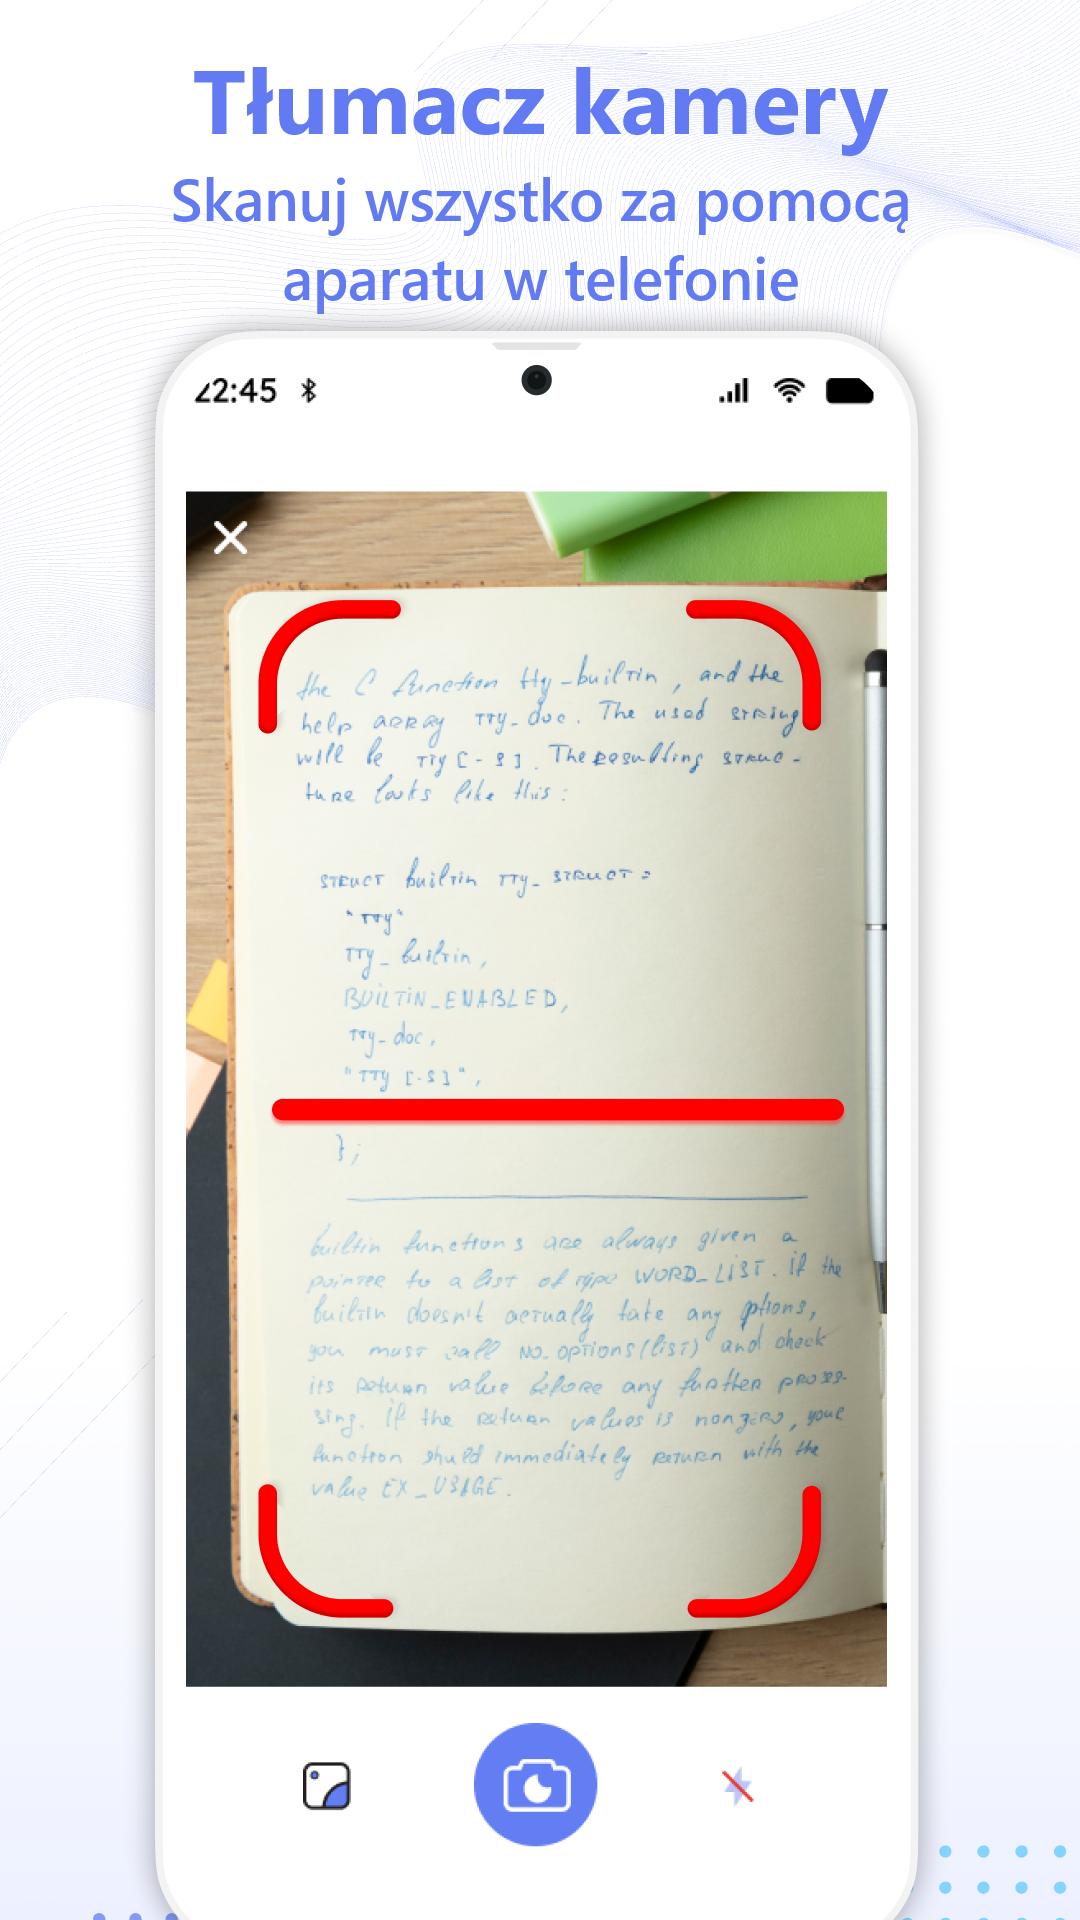 Tłumacz kamery
Skanuj wszystko za pomocą
aparatu w telefonie
22:45
the C function tty_builtin, and the
help array tty_doc. The used string
will be tty [-s]. The resulting struc-
ture looks like this:
struct builtin tty_struct =
"tty"
tty_builtin,
BUILTIN_ENABLED,
tty_doc,
"tty [-s]",
};
builtin functions are always given a
pointer to a list of type WORD_LIST. if the
builtin doesn't actually take any options,
you must call no_options(list) and check
its return value before any further proses-
sing. if the return values is nonzero, your
function should immediately return with the
value EX_USAGE.